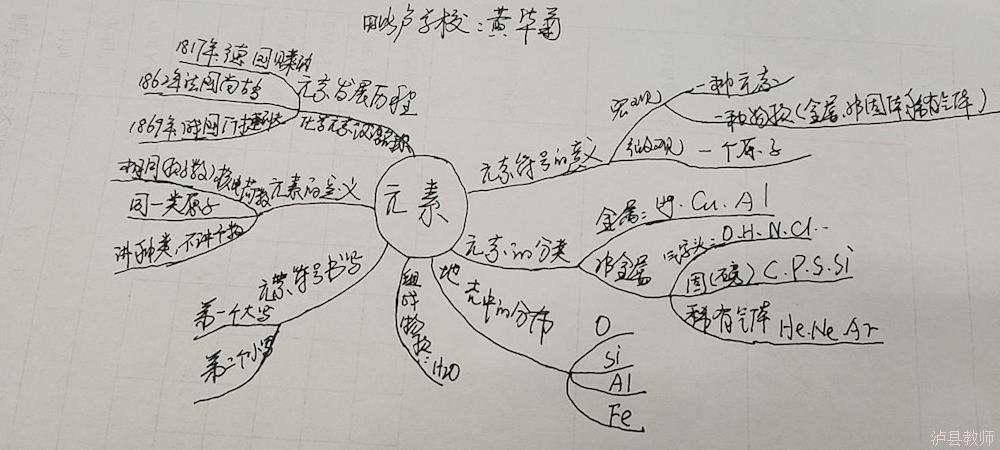 毗卢学校：黄华菊
元素
元素发展历程
1817年德国
1862年法国尚古多
1869年俄国门捷列夫
元素的定义
相同核电荷数(质子数)
同一类原子
讲种类、不讲个数
元素符号书写
第一个大写
第二个小写
组成物质：H2O
地壳中的分布
O
Si
Al
Fe
元素的分类
金属：Mg.Cu.Al
非金属
气字头：O.H.N.Cl..
固(石旁) C.P.S.Si
稀有气体 He.Ne.Ar
元素符号的意义
宏观
一种元素
一种物质(金属.非固体.稀有气体)
微观
一个原子
泸县教师